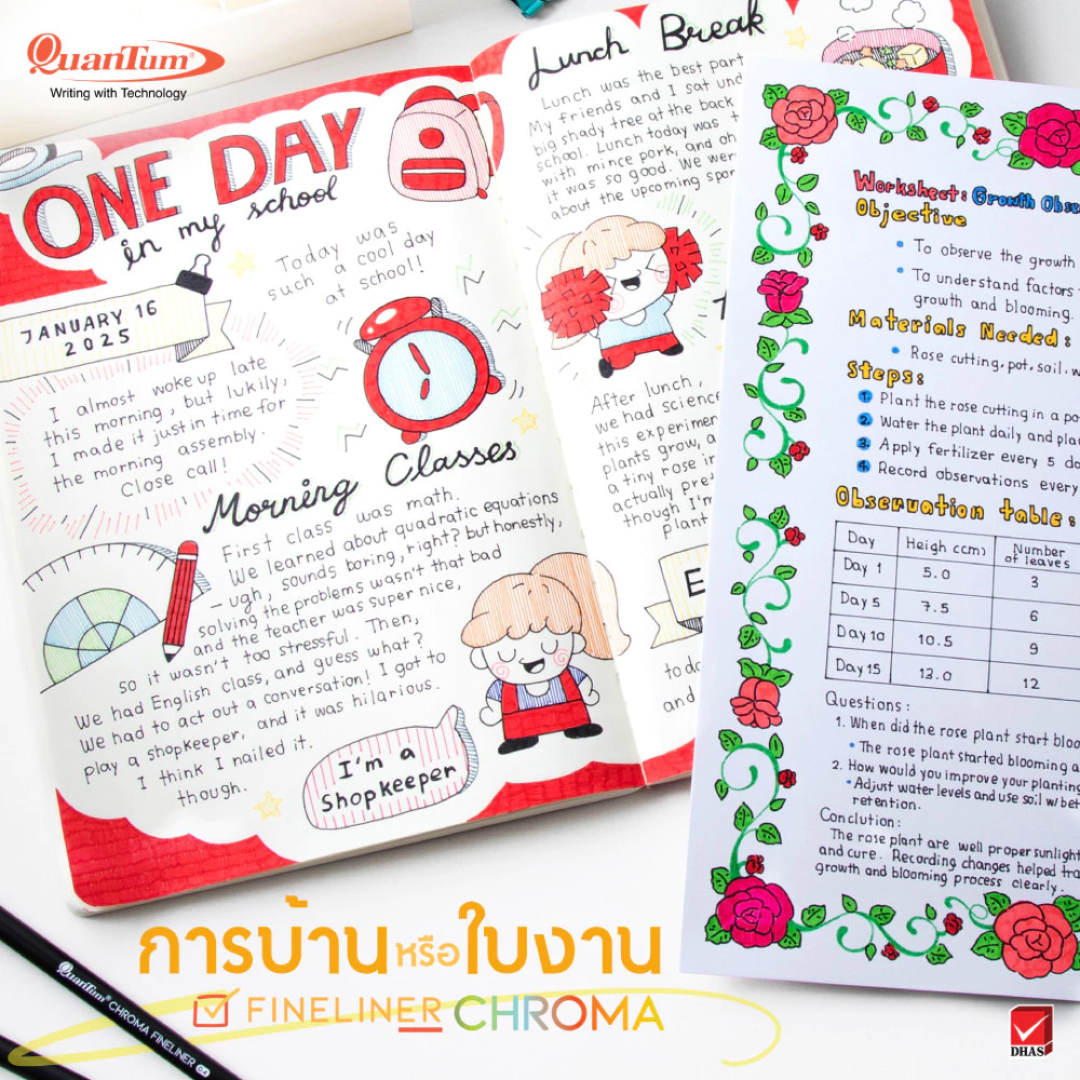 QuanTum®
Writing with Technology
ONE DAY
in my school
Today was
such a cool day
at school!
JANUARY 16
2025
I almost woke up late
this morning, but lukily,
I made it just in time for
the morning assembly.
Close call!
Morning Classes
First class was math.
We learned about quadratic equations
– ugh, sounds boring, right? but honestly,
solving the problems wasn't that bad
and the teacher was super nice,
so it wasn't too stressful. Then,
We had English class, and guess what?
We had to act out a conversation! I got to
play a shopkeeper, and it was hilarious.
I think I nailed it.
though.
I'm a
shopkeeper
Lunch Break
Lunch was the best part
My friends and I sat und
big shady tree at the back
school. Lunch today was
with mince pork, and oh
it was so good. We were
about the upcoming spor
After lunch,
we had science
this experimen
plants grow, a
a tiny rose in
actually pre
though I'm
plant
E
to do
and
Worksheet: Growth Obse
Objective
• To observe the growth
• To understand factors
growth and blooming.
Materials Needed:
• Rose cutting, pot, soil, w
Steps:
1. Plant the rose cutting in a po
2. Water the plant daily and pla
3. Apply fertilizer every 5 da
4. Record observations every
Observation table:
Day Heigh ccm) Number of leaves
Day 1 5.0 3
Day 5 7.5 6
Day 10 10.5 9
Day 15 13.0 12
Questions:
1. When did the rose plant start bloo
• The rose plant started blooming a
2. How would you improve your planting
• Adjust water levels and use soil w/ bet
retention.
Conclution:
The rose plant are well proper sunlight
and cure. Recording changes helped tra
growth and blooming process clearly.
การบ้านหรือใบงาน
FINELINER CHROMA
QuanTum® CHROMA FINELINER 0.4
DHAS